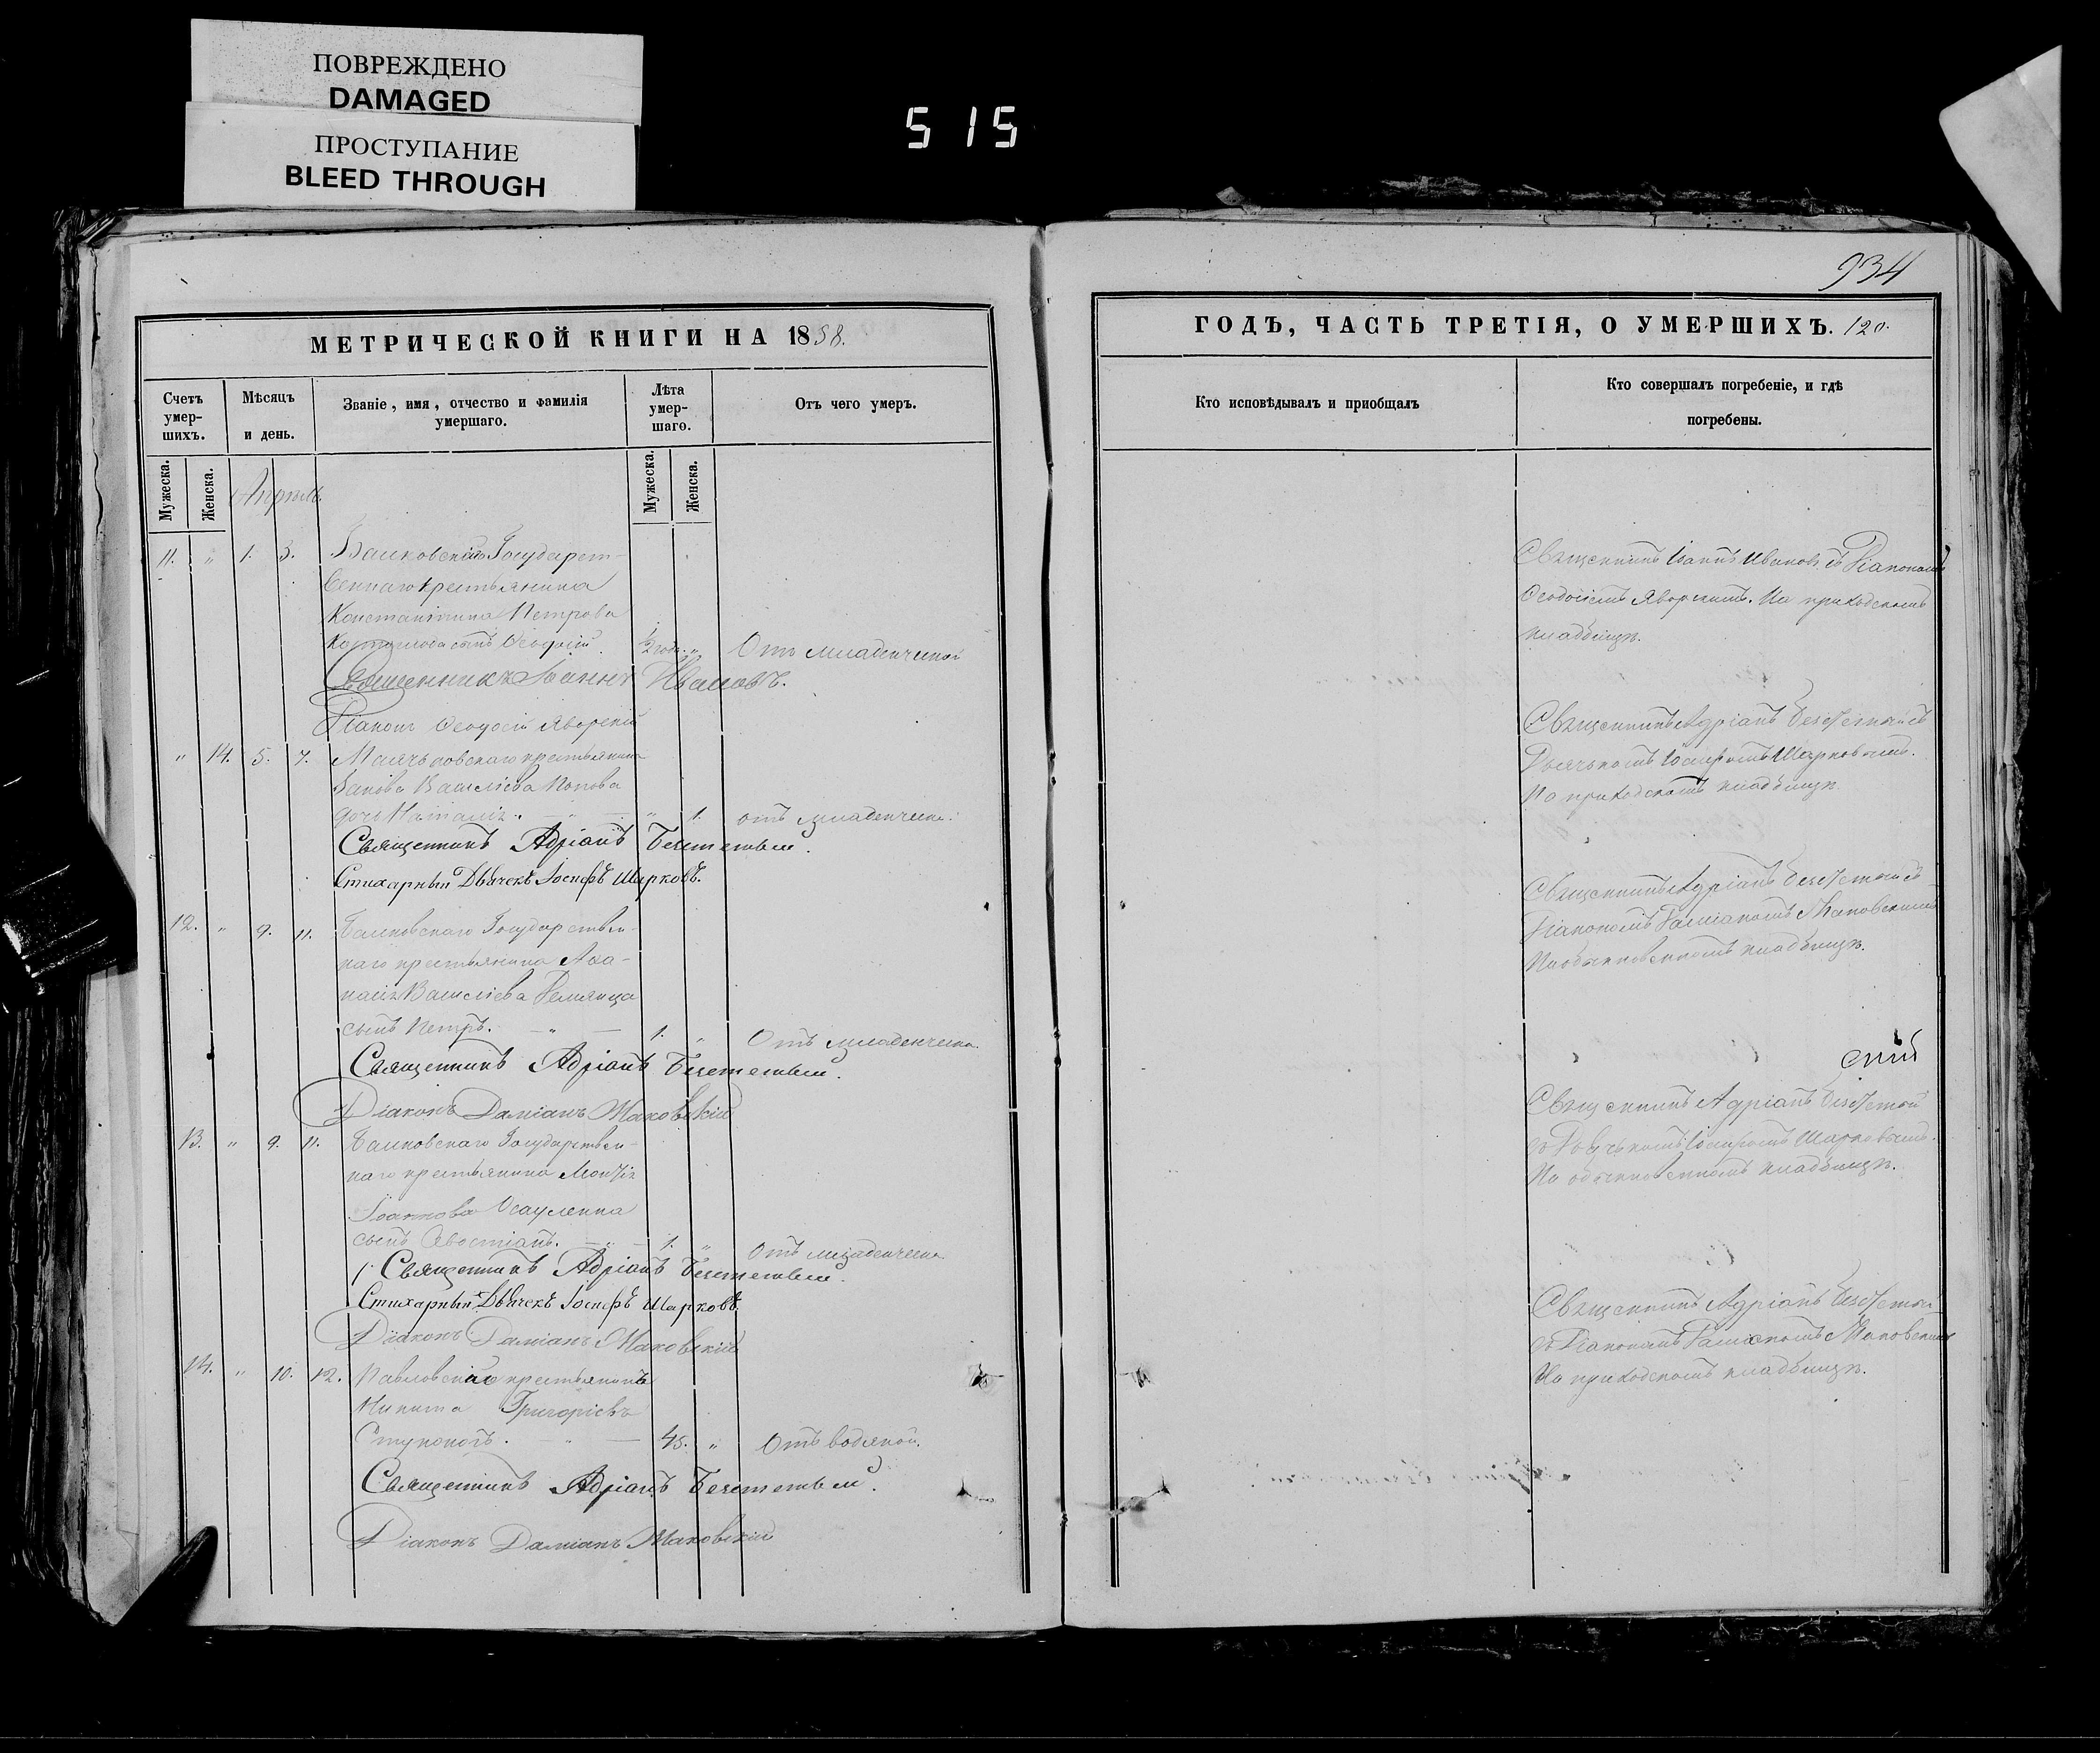 ПОВРЕЖДЕНО
DAMAGED
ПРОСТУПАНИЕ
BLEED THROUGH
515
МЕТРИЧЕСКОЙ КНИГИ НА 1858.
Счетъ умер-шихъ.
Мѣсяцъ и день.
Званіе, имя, отчество и фамилія умершаго.
Лѣта умер-шаго.
Отъ чего умеръ.
Мужеска.
Женска.
Мужеска.
Женска.
Апрѣль
11. " 1. 3. Государст-
веннаго крестьянина
Константина Петрова
сынъ Ѳеодосій. 1/2 года " Отъ младенческой
Священникъ Іоаннъ Ивановъ.
Діаконъ Ѳеодосій Яворскій
" 14. 5. 7. крестьянина
Василіева Попова
дочь Наталія. " 1. отъ младенческ.
Священникъ Адріанъ
Стихарный Дьячекъ Іосифъ Шарковъ.
12. " 9. 11. Государствен-
наго крестьянина Аѳа-
насія Василіева Демянца
сынъ Петръ. " 1. " Отъ младенческ.
Священникъ Адріанъ
Діаконъ Даміанъ Маковскій
13. " 9. 11. Государствен-
наго крестьянина
Іоаннова Осауленка
сынъ 1. " Отъ младенческ.
Священникъ Адріанъ
Стихарный Дьячекъ Іосифъ Шарковъ
Діаконъ Даміанъ Маковскій
14. " 10. 12. Павловскій крестьянинъ
Никита Григоріевъ
45. " Отъ водяной.
Священникъ Адріанъ
Діаконъ Даміанъ Маковскій
934
ГОДЪ, ЧАСТЬ ТРЕТІЯ, О УМЕРШИХЪ. 120.
Кто исповѣдывалъ и приобщалъ
Кто совершалъ погребеніе, и гдѣ
погребены.
Священникъ Іоаннъ Ивановъ съ Діакономъ
Ѳеодосіемъ Яворскимъ. На приходскомъ
кладбищѣ.
Священникъ Адріанъ
Дьячкомъ Іосифомъ Шарковымъ.
На приходскомъ кладбищѣ
Священникъ Адріанъ
Діакономъ Даміаномъ Маковскимъ
На обыкновенномъ кладбищѣ.
скій
Священникъ Адріанъ
съ Дьячкомъ Іосифомъ Шарковымъ.
На обыкновенномъ кладбищѣ.
Священникъ Адріанъ
съ Діакономъ Даміаномъ Маковскимъ
На приходскомъ кладбищѣ.